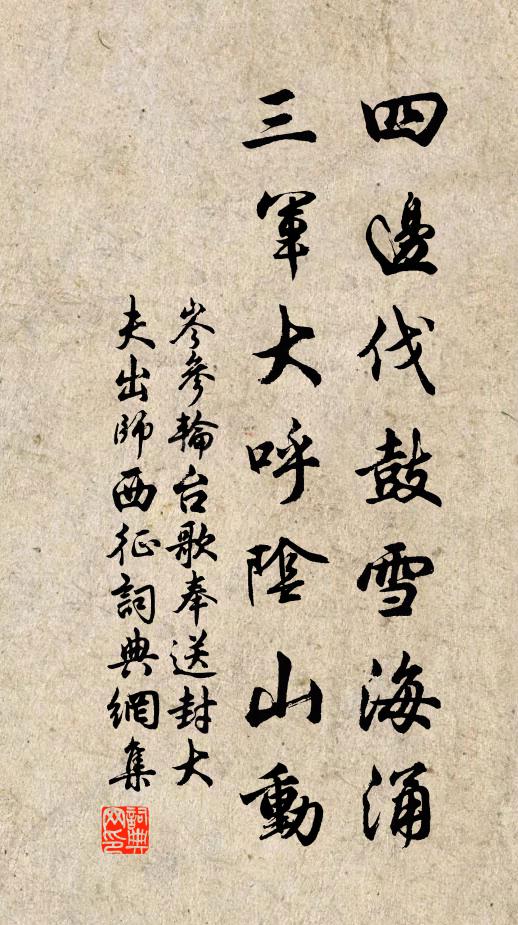 四邊伐鼓雪海涌
三軍大呼陰山動
岑參輪台歌奉送封大
夫出師西征詞典網集
詞典網印